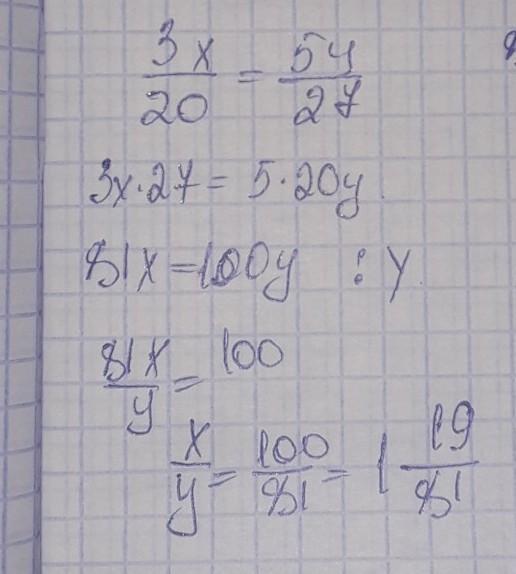 3x/20 = 5y/27
3x·27 = 5·20y
81x = 100y :y
81x/y = 100
x/y = 100/81 = 1 19/81